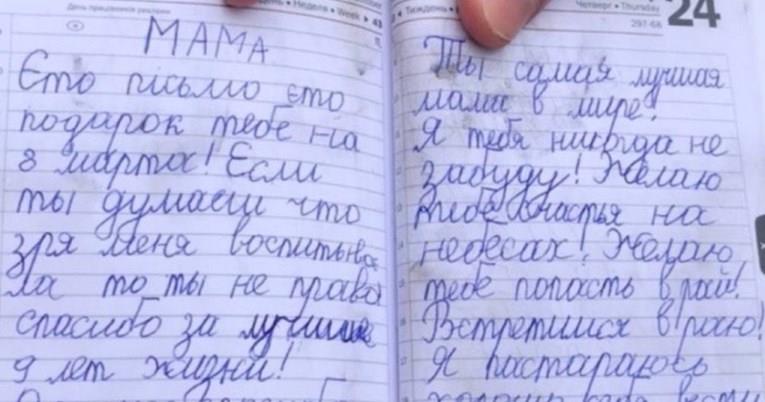 День працівників реклами
Неделя • Week ▸ 43
МАМА
Єто письмо єто
подарок тебе на
8 марта! Если
ты думаеш что
зря меня воспитыва
ла то ты не права
спасибо за лучшие
9 лет жизни!
Тиждень •
Четверг • Thursday
24
297-68
Ты самая лучшая
мама в мире!
Я тебя никогда не
забуду! Желаю
тебе счастья на
небесах! Желаю
тебе попасть в рай!
Встретимся в раю!
Я пастараюсь